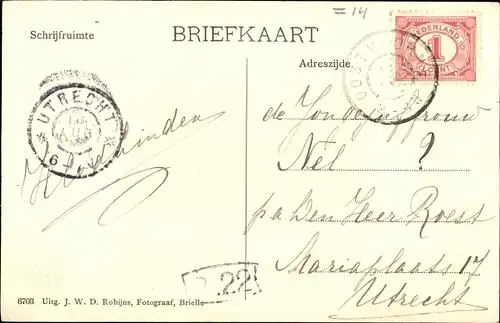 = 14
Schrijfruimte
BRIEFKAART
Adreszijde.
NEDERLAND
1
CENT
UTRECHT
de Jongejuffrouw
Nel ?
p/a Den Heer Roest
Mariaplaats 17
Utrecht
22
6703 Uitg. J. W. D. Robijns, Fotograaf, Brielle